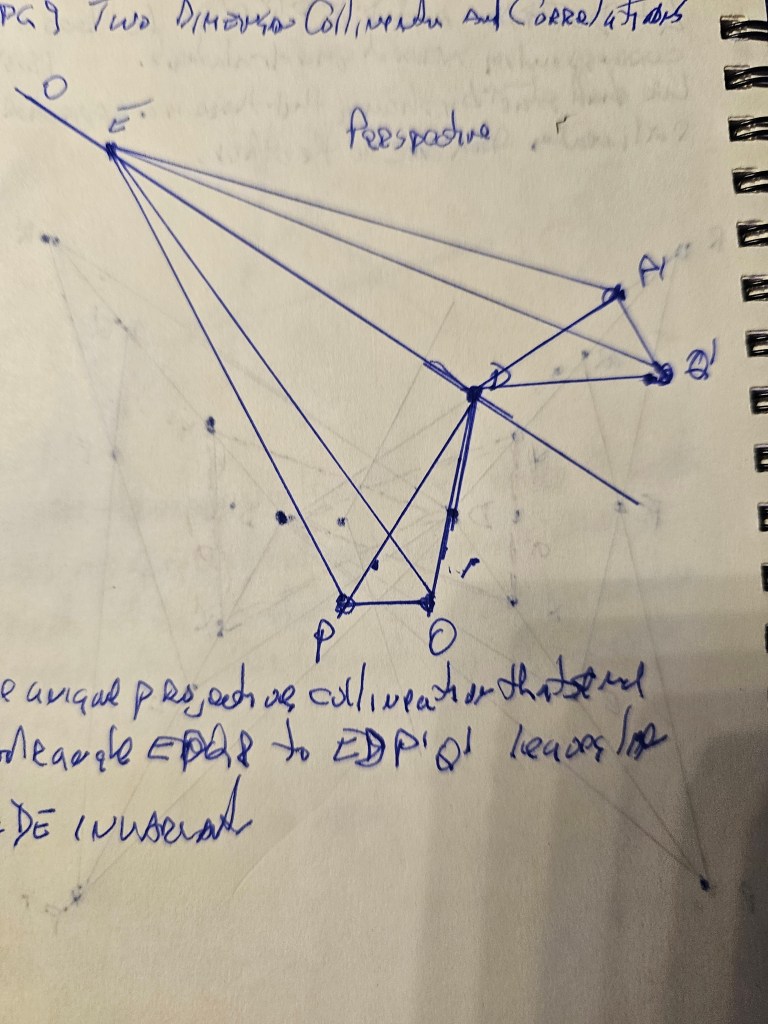 PG 9 Two Dimension Collineation and Correlations
O
E
Perspective
P'
D
Q'
P
Q
e unique projective collineation that send
EDQP to EDP'Q' leaves line
DE invariant